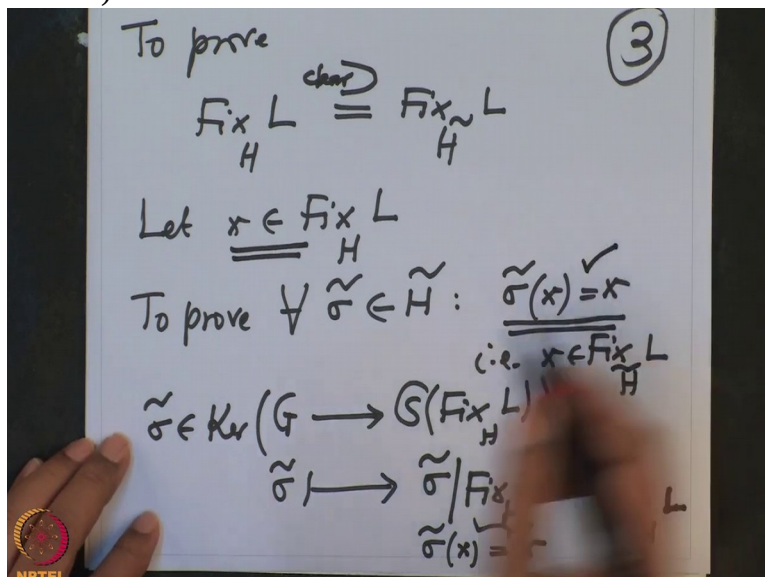 To prove
③
Fix_H L clear⊃ = Fix_H̃ L
Let x ∈ Fix_H L
To prove ∀ σ̃ ∈ H̃ : σ̃(x) = x ✓
i.e. x ∈ Fix_H̃ L
σ̃ ∈ Ker (G ⟶ G(Fix_H L)
σ̃ ⟼ σ̃|Fix L
σ̃(x) =
NPTEL